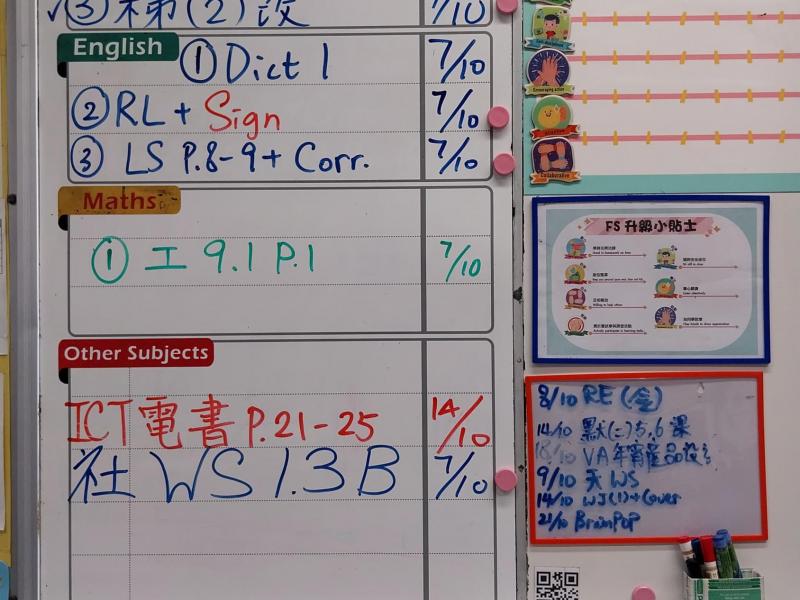 ✓③ 梯(2)設 7/10
English
① Dict 1 7/10
② RL + Sign 7/10
③ LS P.8-9 + Corr. 7/10
Maths
① 工 9.1 P.1 7/10
Other Subjects
ICT電書 P.21-25 14/10
社 WS 1.3B 7/10
Encouraging action
Collaborative
FS升級小貼士
8/10 RE (全)
14/10 默(二) 5.6 課
18/10 VA年宵產品設
9/10 天 WS
14/10 WJ(1)+Cover
21/10 BrainPOP